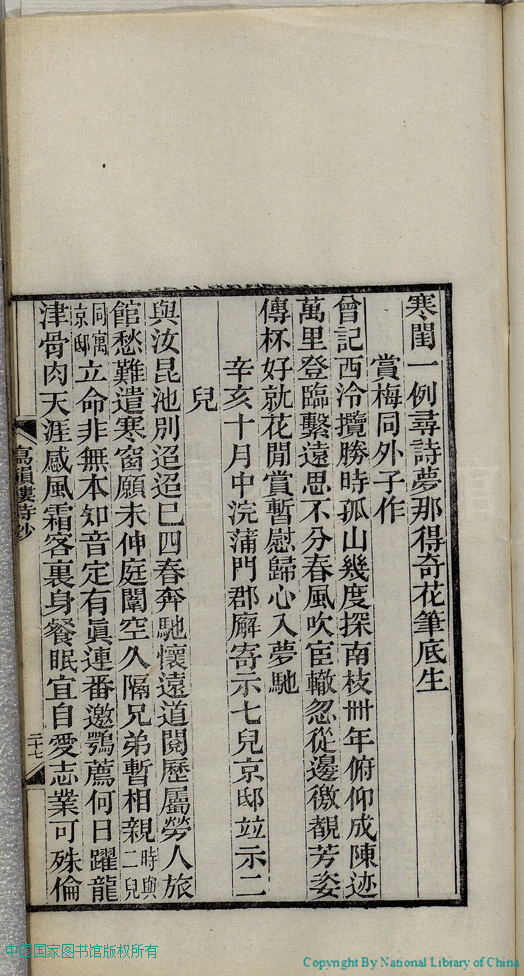 寒閨一例尋詩夢那得奇花筆底生
賞梅同外子作
曾記西泠攬勝時孤山幾度探南枝卌年俯仰成陳迹
萬里登臨繫遠思不分春風吹宦轍忽從邊徼覩芳姿
傳杯好就花閒賞暫慰歸心入夢馳
辛亥十月中浣蒲門郡廨寄示七兒京邸竝示二
兒
與汝昆池別迢迢已四春奔馳懷遠道閱歷屬勞人旅
館愁難遣寒窗願未伸庭闈空久隔兄弟暫相親時與二兒
同寓京邸立命非無本知音定有眞連番邀鶚薦何日躍龍
津骨肉天涯感風霜客裏身餐眠宜自愛志業可殊倫
詩鈔
二十七
中国国家图书馆版权所有
Copyright By National Library of China